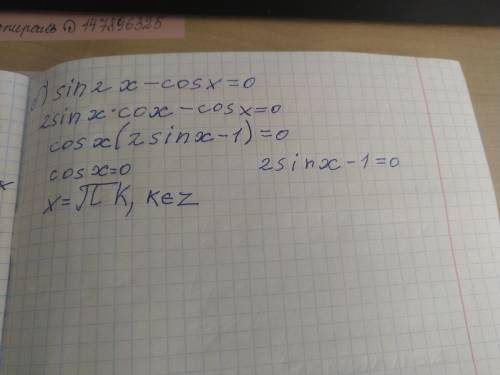 sin2x-cosx=0
2sinx·cox-cosx=0
cosx(2sinx-1)=0
cosx=0 2sinx-1=0
x=πk, k∈z